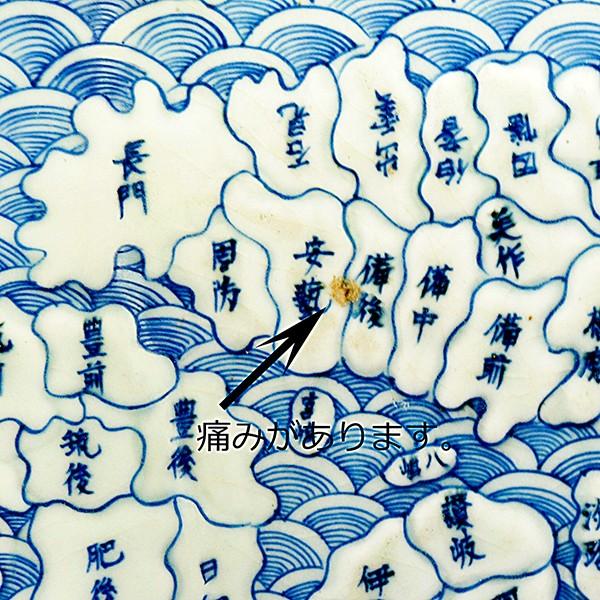 長門
石見
出雲
伯耆
因幡
美作
周防
安藝
備後
備中
備前
豊前
豊後
筑後
肥後
讃岐
八嶋
伊
淡路
痛みがあります。